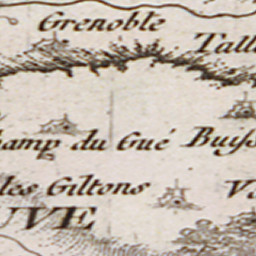 Grenoble
Tall
amp du Gué Buiss
les Giltons
UVE